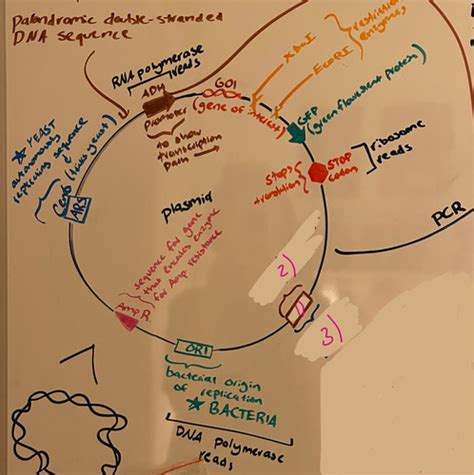 Palandromic double-stranded
DNA sequence
RNA polymerase
reads
ADH
promoter
to show
transcription
path
GOI
(gene of interest)
XbaI
EcoRI
restriction
enzymes
GFP
(green fluorescent protein)
STOP
codon
Stops
translation
ribosome
reads
PCR
★ YEAST
autonomously
replicating sequence
ARS
plasmid
sequence for gene
that encodes enzyme
for Amp resistance
Amp R
2)
1)
3)
ORI
bacterial origin
of replication
★ BACTERIA
DNA polymerase
reads